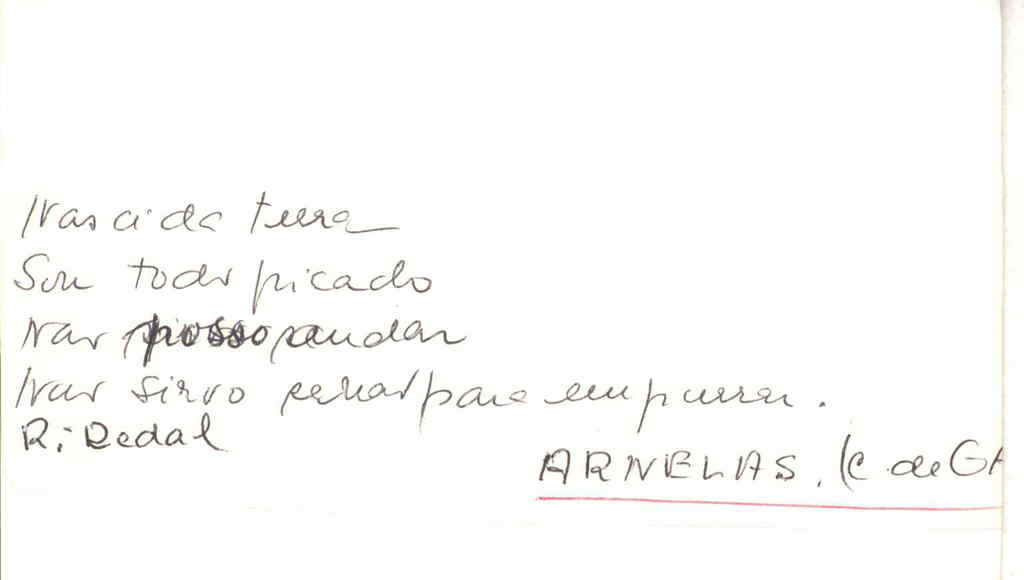 Nasci da terra
Sou todo picado
Nao posso andar
Nao sirvo senao para empurrar.
R: Dedal
ARNELAS, (C. de GA